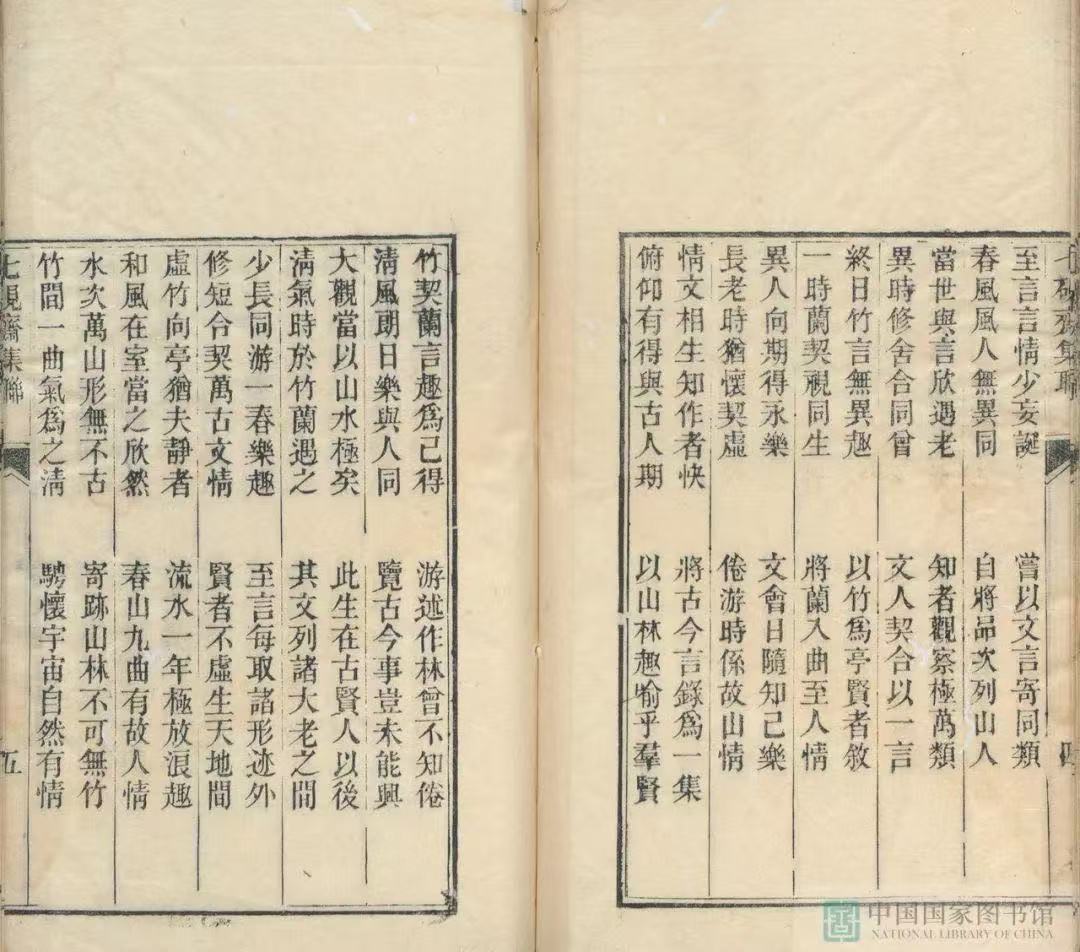 七硯齋集聯 四
至言言情少妄誕 嘗以文言寄同類
春風風人無異同 自將品次列山人
當世與言欣遇老 知者觀察極萬類
異時修舍合同曾 文人契合以一言
終日竹言無異趣 以竹爲亭賢者敘
一時蘭契視同生 將蘭入曲至人情
異人向期得永樂 文會日隨知己樂
長老時猶懷契虛 倦游時係故山情
情文相生知作者快 將古今言錄爲一集
俯仰有得與古人期 以山林趣喻乎羣賢
竹契蘭言趣爲己得 游述作林曾不知倦
淸風朗日樂與人同 覽古今事豈未能興
大觀當以山水極矣 此生在古賢人以後
淸氣時於竹蘭遇之 其文列諸大老之間
少長同游一春樂趣 至言每取諸形迹外
修短合契萬古文情 賢者不虛生天地間
虛竹向亭猶夫靜者 流水一年極放浪趣
和風在室當之欣然 春山九曲有故人情
水次萬山形無不古 寄跡山林不可無竹
竹間一曲氣爲之淸 騁懷宇宙自然有情
七硯齋集聯 五
中国国家图书馆
NATIONAL LIBRARY OF CHINA